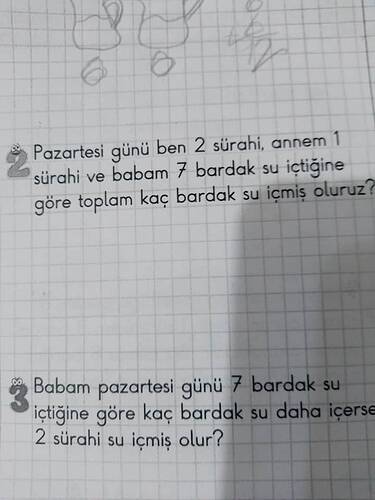 6 6
6
6
12
2 Pazartesi günü ben 2 sürahi, annem 1
sürahi ve babam 7 bardak su içtiğine
göre toplam kaç bardak su içmiş oluruz?
3 Babam pazartesi günü 7 bardak su
içtiğine göre kaç bardak su daha içerse
2 sürahi su içmiş olur?